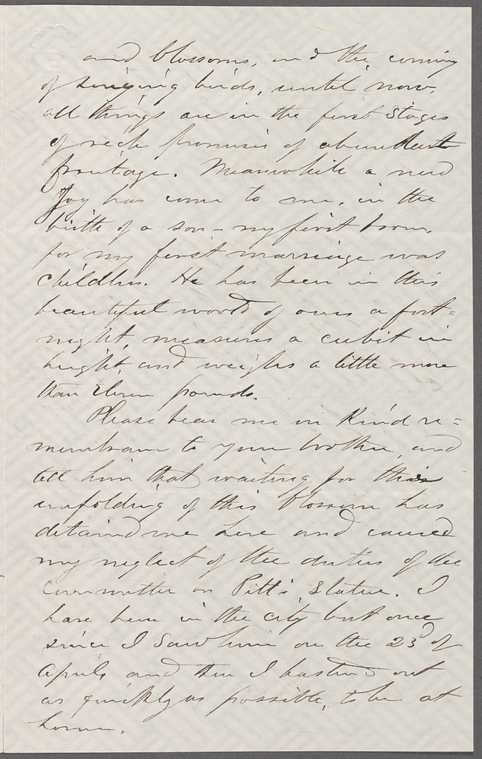 and blossoms, and the coming
of singing birds, until now,
all things are in the first stages
of rich promise of abundant
fruitage. Meanwhile a new
Joy has come to me, in the
birth of a son – my first born,
for my first marriage was
childless. He has been in this
beautiful world of ours a fort=
night, measures a cubit in
height, and weighs a little more
than eleven pounds.
Please bear me in kind re=
membrance to your brother, and
tell him that waiting for this
unfolding of this blossom has
detained me here and caused
my neglect of the duties of the
committee on Pitt's Statue. I
have been in the city but once
since I saw him on the 23d of
April and then I hastened out
as quickly as possible, to be at
home.